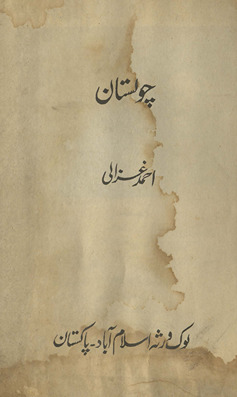 چولستان
احمد غزالی
لوک ورثہ اسلام آباد - پاکستان